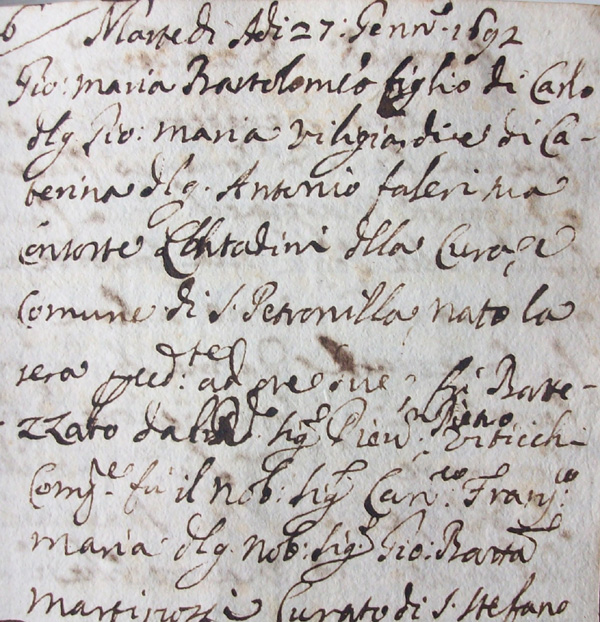 6 Martedi Adi 27: Genn:º 1692
Gio: maria Bartolomeo figlio di Carlo
dlg Gio: maria viligiardi e di Ca-
terina dlg. Antonio faleri sua
Consorte Contadini dlla Cura e
Comune di S. Petronilla nato la
sera preced:te ad ore due, fù Batte-
zzato dal Sig:e Piov:º Piero Viticchi
Comp:e fù il Nob: Sig:e Can:co Franc:co
maria dlg. Nob: Sig:e Gio: Batta
martinozzi Curato di S. Stefano